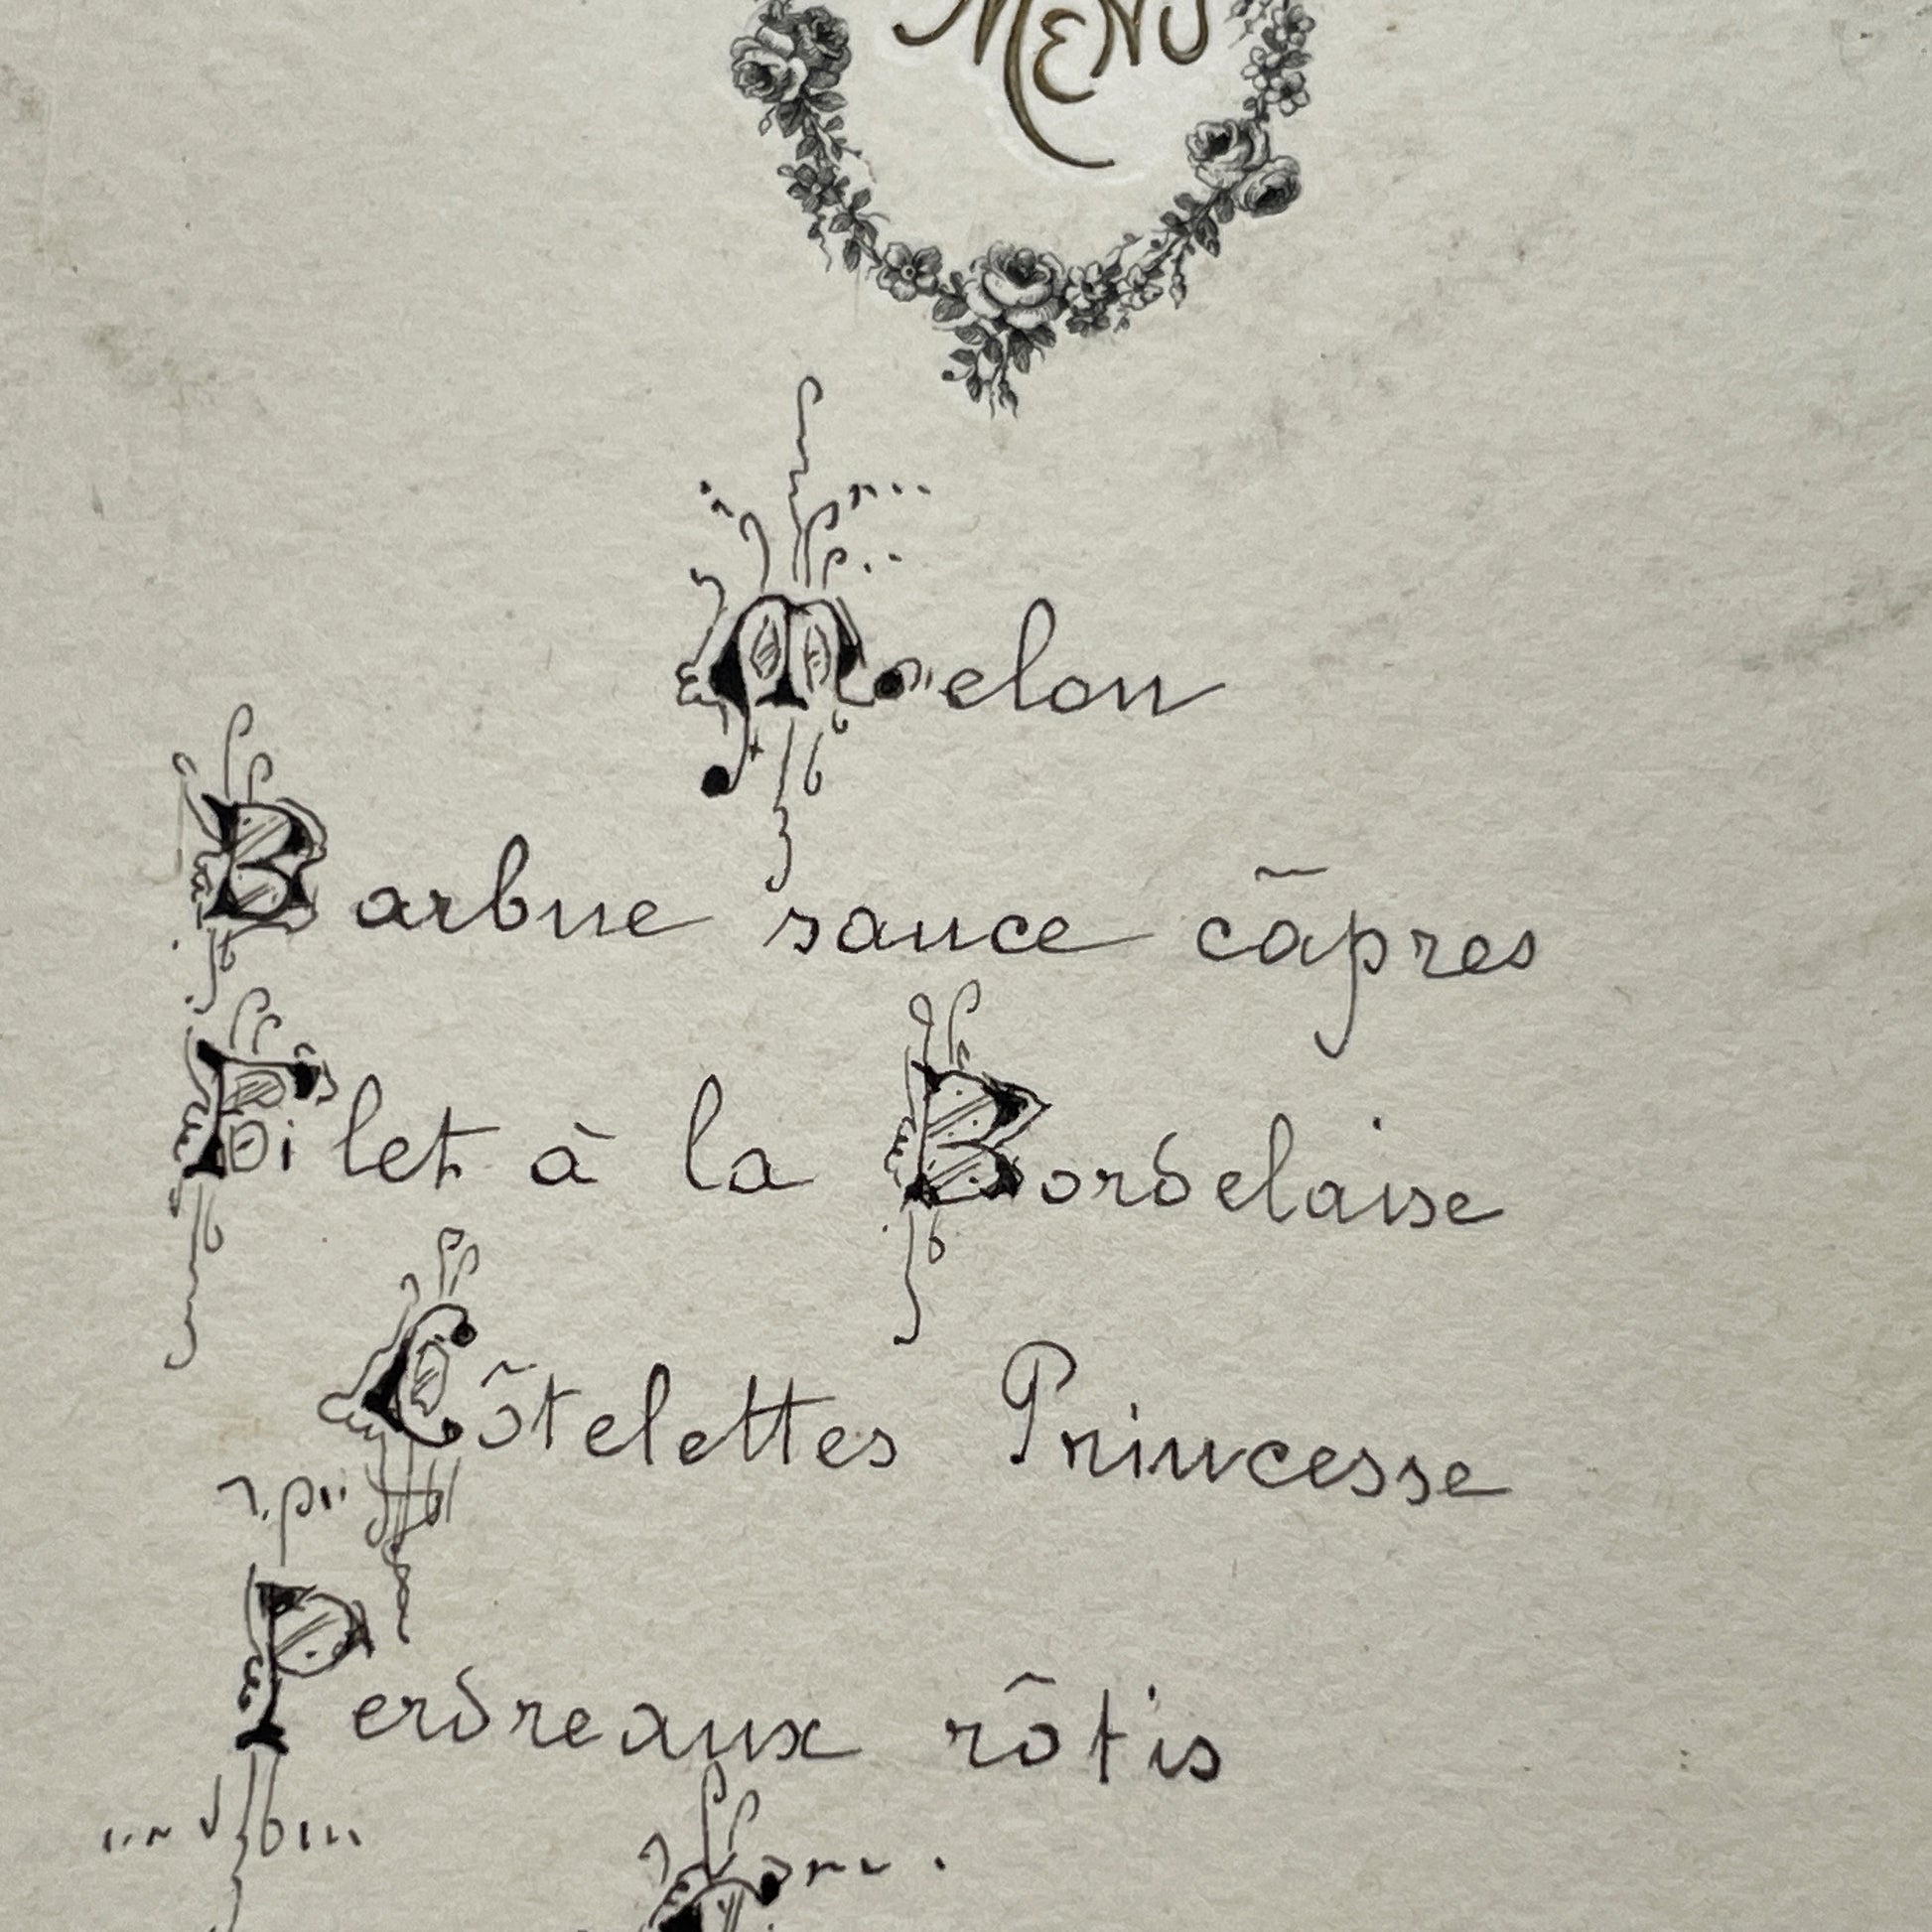 MENU
Melon
Barbue sauce câpres
Filet à la Bordelaise
Côtelettes Princesse
Perdreaux rôtis